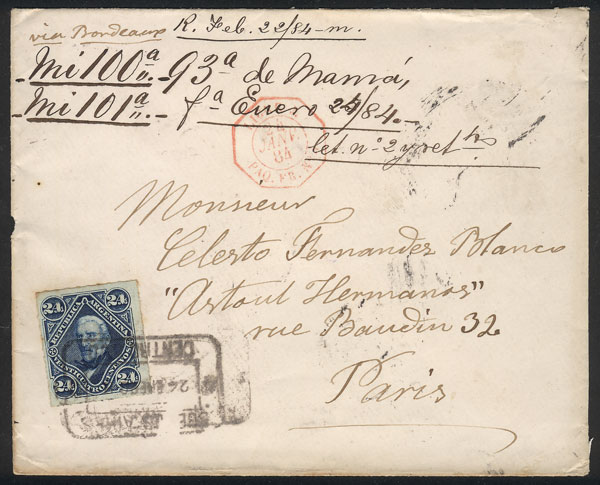 via Bordeaux R. Feb. 22/84-m.
Mi 100ª 93ª de Mamá,
Mi 101ª fª Enero 24/84.
let. nº 2 y ret
JANV.
84
PAQ. FR.
Monsieur
Celesto Fernandez Blanco
"Astoul Hermanos"
rue Baudin 32
Paris
24 24
REPUBLICA ARGENTINA
VEINTICUATRO CENTAVOS
24 24
24 ENE